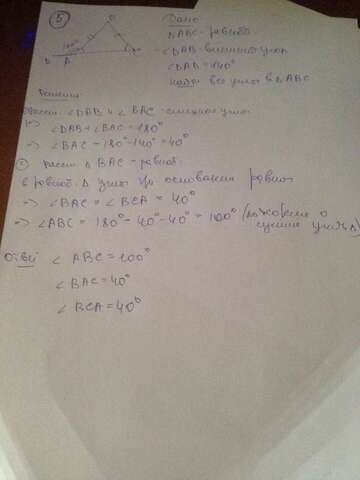 5
Дано:
△ABC - равноб.
∠DAB - внешний угол
∠DAB = 140°
Найти все углы в △ABC
B
140°
D A
Решение:
Рассм. ∠DAB и ∠BAC - смежные углы
=> ∠DAB + ∠BAC = 180°
=> ∠BAC = 180° - 140° = 40°
Рассм. △BAC - равноб.
В равноб. △ углы при основании равны
=> ∠BAC = ∠BCA = 40°
=> ∠ABC = 180° - 40° - 40° = 100° (по теореме о
сумме углов △)
Ответ ∠ABC = 100°
∠BAC = 40°
∠BCA = 40°